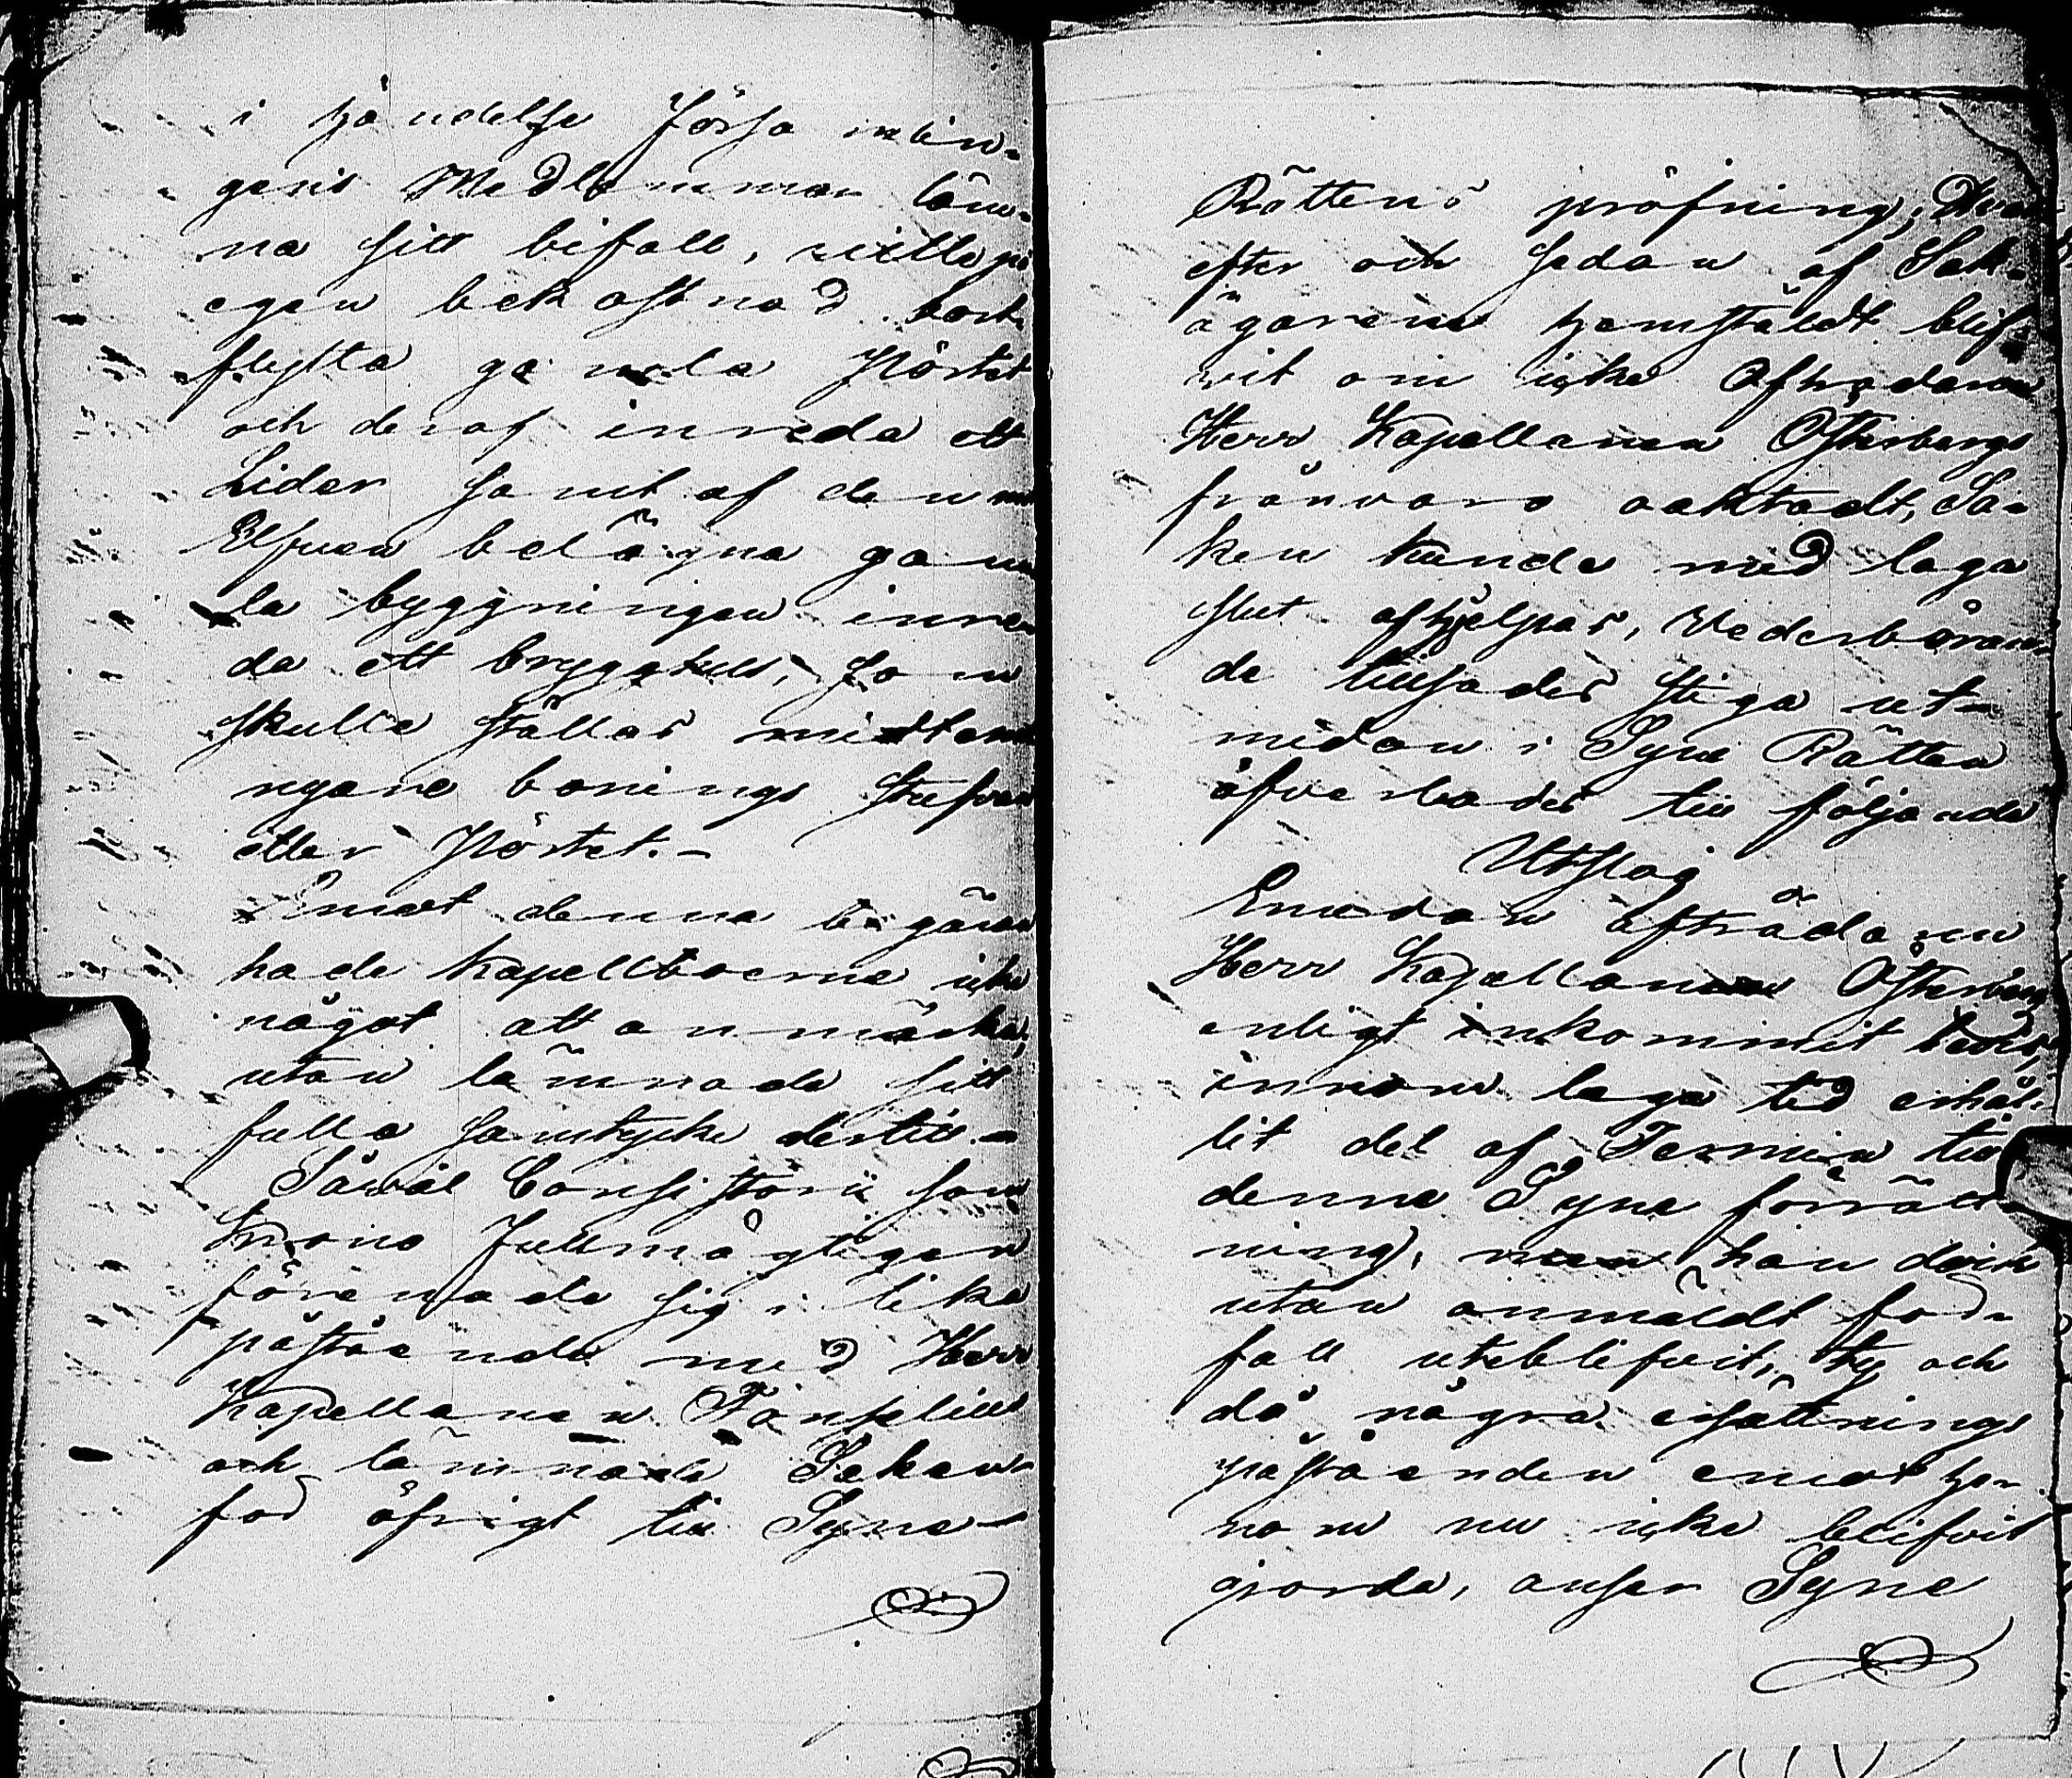 i händelse Församlin-
gens Medlemmar läm-
na sitt bifall, ville på
egen bekostnad bort-
flytta gamla Pörtet
och deraf inreda ett
Lider samt af den
Elfven belägna gam-
la byggningen inre-
da ett brygghus, som
skulle ställas
nyare bonings stufvan
eller Pörtet.-
Emot denna begäran
hade Kapellboerne icke
något att anmärka,
utan lämnade sitt
fulla samtycke dertill.-
Såwäl Consistorii som
Krono Fullmägtigen
förenade sig i lika
påstående med Herr
Kapellanen
och lämnade Saken
för öfrigt till Syne-
Rättens pröfning; Hvar-
efter och sedan af Sak-
ägarena hemstäldt blif-
vit om icke Afträdaren
Herr Kapellanen Österbergs
frånvaro oaktadt, Sa-
ken kunde med laga
slut afhjelpas, Vederböran-
de tillsades stiga ut-
medan i Syne Rätten
öfverlades till följande
Utslag
Emedan afträdaren
Herr Kapellanen Österberg
enligt inkommit bevis,
innom laga tid erhål-
lit del af Termin till
denna Syne förrätt-
ning, men han dock
utan anmäldt för-
fall uteblifvit, ty och
då några ersättnings
påståenden emot ho-
nom nu icke blifvit
gjorda, anser Syne